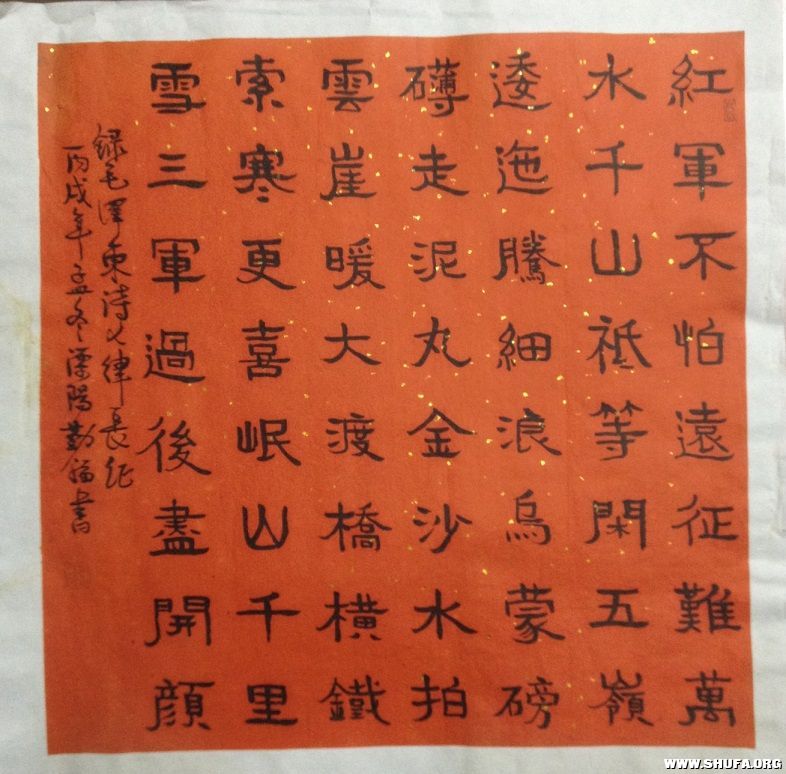 紅軍不怕遠征難萬
水千山祗等閑五嶺
逶迤騰細浪烏蒙磅
礡走泥丸金沙水拍
雲崖暖大渡橋橫鐵
索寒更喜岷山千里
雪三軍過後盡開顔
録毛澤東詩七律長征
丙戌年孟冬溧陽勤福書
WWW.SHUFA.ORG